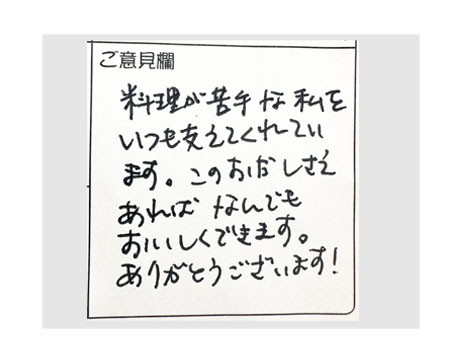 ご意見欄
料理が苦手な私を
いつも支えてくれてい
ます。このおだしさえ
あれば なんでも
おいしくできます。
ありがとうございます!